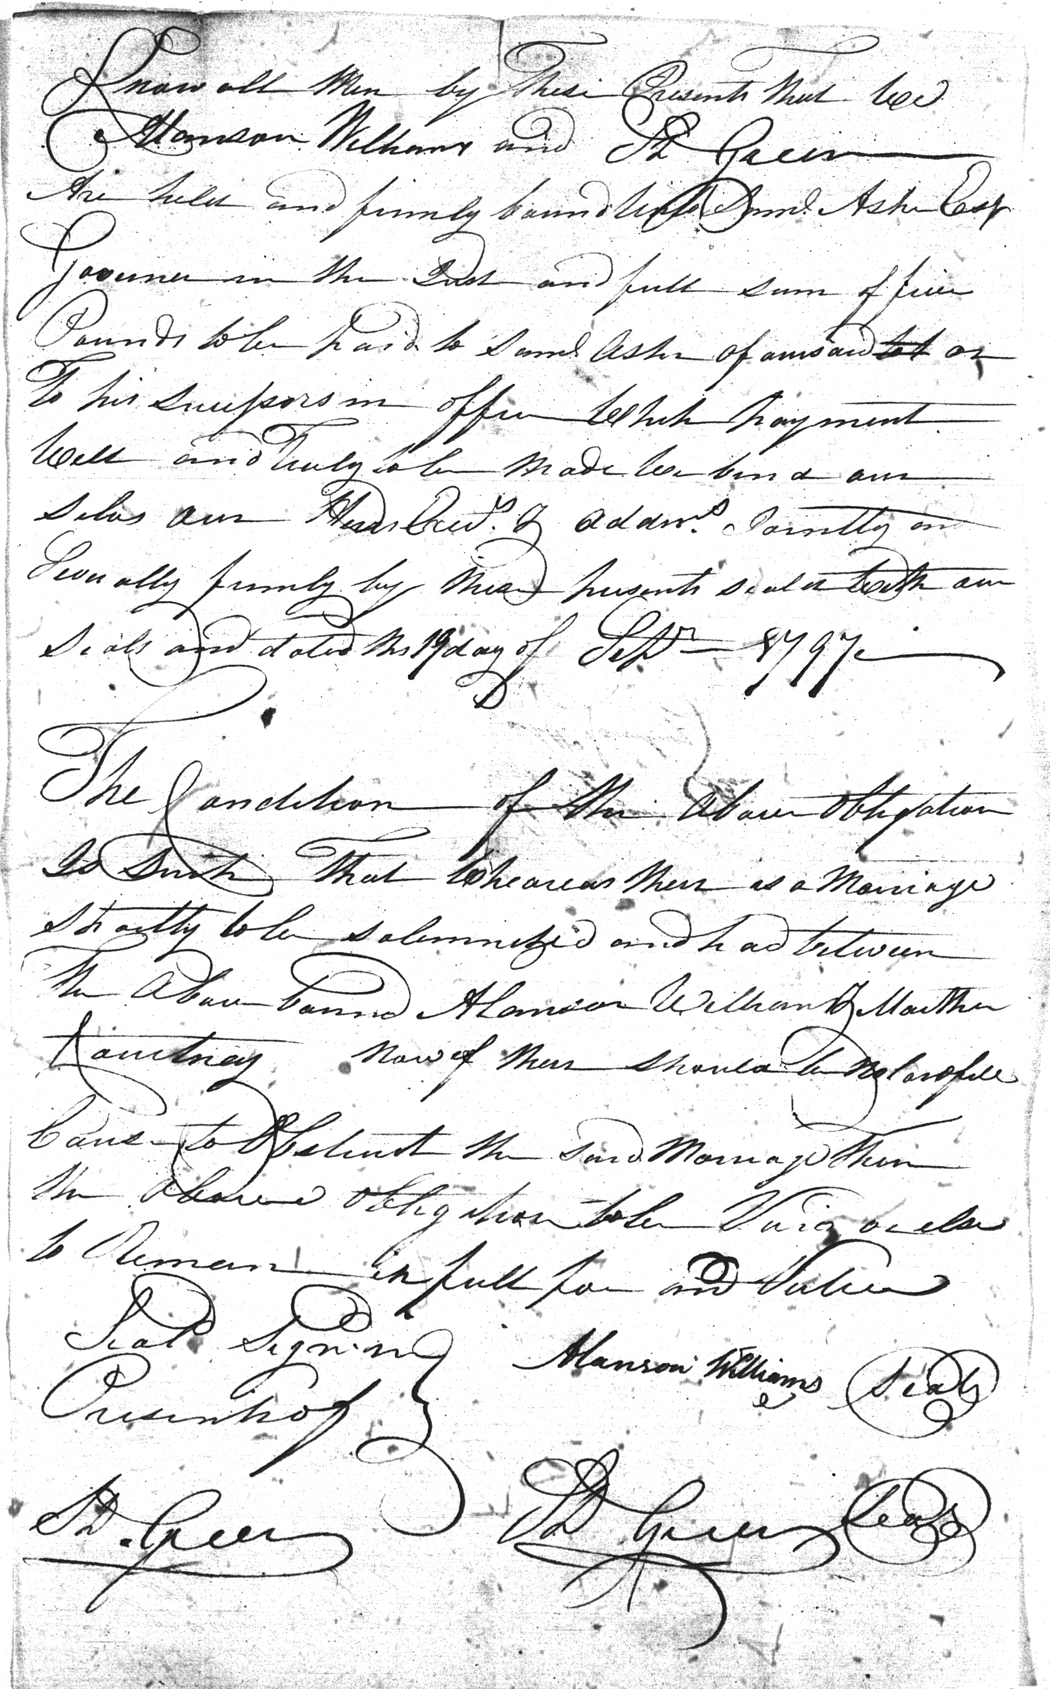 Know all Men by These Presents That We
Alanson Williams and Sd Green
Are held and firmly bound Unto Saml. Ashe Esqr
Governer in the Just and full sum of five
Pounds to be paid to Saml Ashe afoursaid or
To his Sucessors in office Which payment
Well and Truly to be Made We bind our
Selvs our Heirs Exrs. & Addmrs. Jointly an
Severally firmly by these presents sealed With our
Seals and dated this 19 day of Sepr 1797
The Condition of the Above Obligation
Is Such That Wheareas there is a Marriage
Shortly to be solemnized and had between
The Above bound Alanson William & Marther
Courtney Now if there should be No lawfull
Cause to Obstruct the said Marriage Then
the Above Obligation to be Void or else
to Remain in full for and Vertue
Seald Signin
Presents of
Alanson Williams Seal
Sd. Green
Sd Green Seal